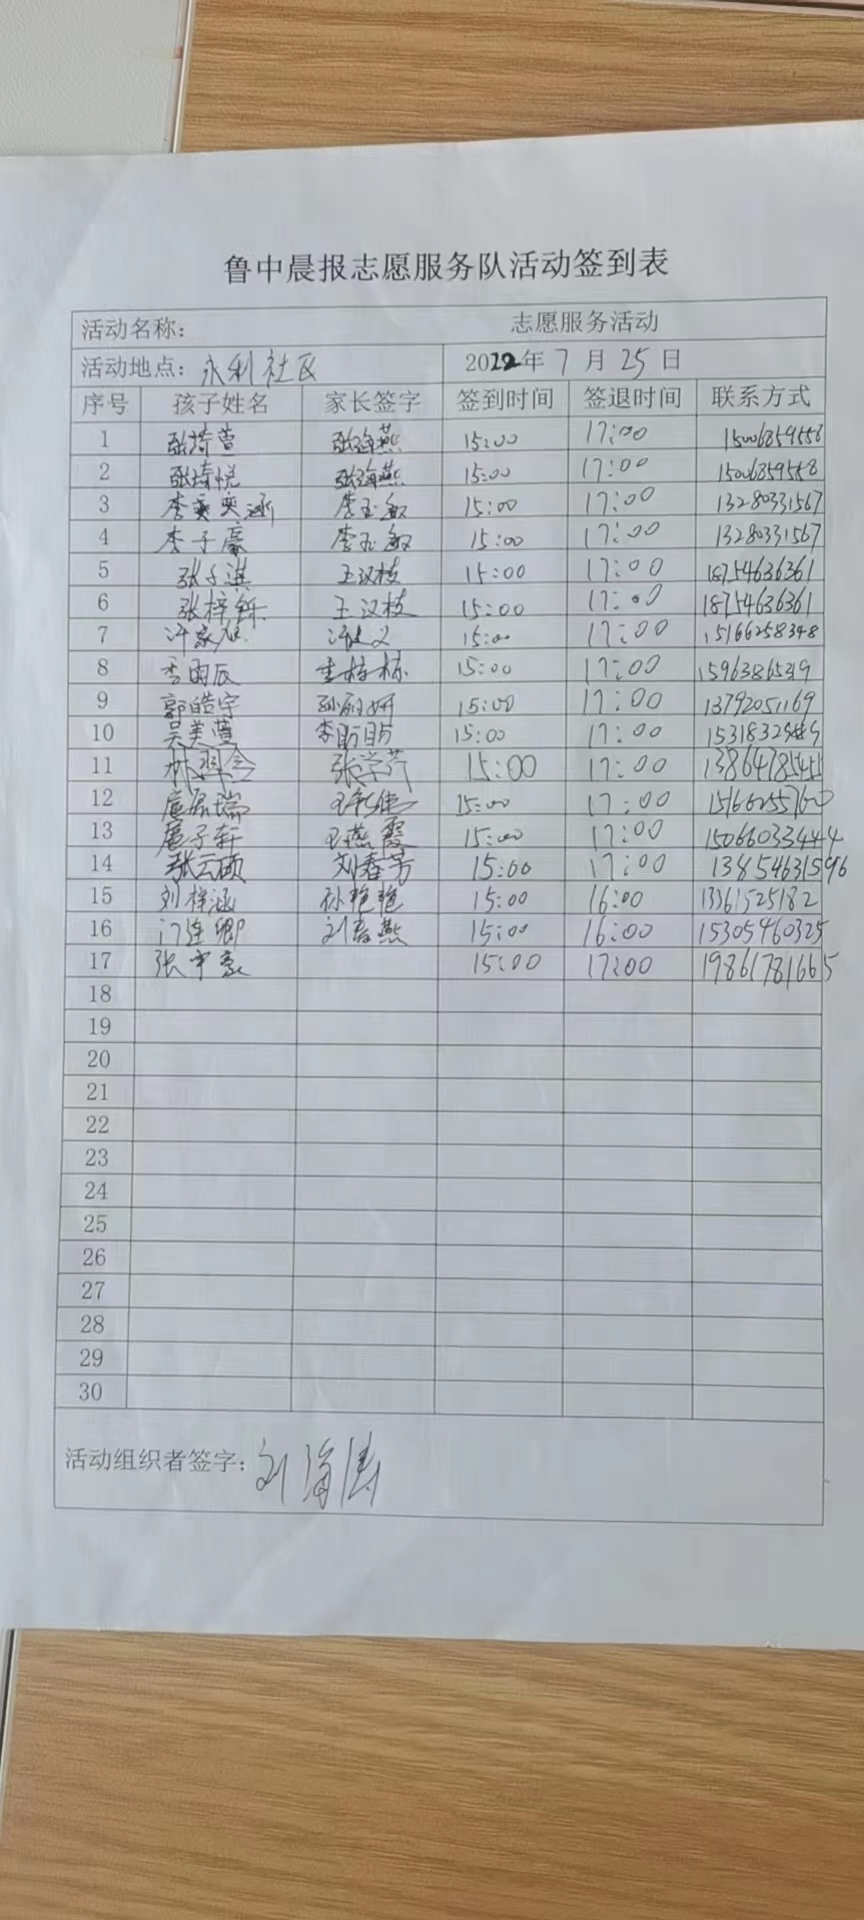 鲁中晨报志愿服务队活动签到表
活动名称: 志愿服务活动
活动地点: 永利社区 2022年7月25日
序号 孩子姓名 家长签字 签到时间 签退时间 联系方式
1 张琦萱 张海燕 15:00 17:00 15006859558
2 张琦悦 张海燕 15:00 17:00 15006859558
3 李奕涵 李玉敏 15:00 17:00 13280331567
4 李子豪 李玉敏 15:00 17:00 13280331567
5 张子淇 王汉枝 15:00 17:00 18754636361
6 张梓铄 王汉枝 15:00 17:00 18754636361
7 15:00 17:00 15166258348
8 李雨辰 15:00 17:00 15963865319
9 郭皓宇 孙丽妍 15:00 17:00 13792051169
10 吴美萱 李盼盼 15:00 17:00
11 张学芹 15:00 17:00
12 15:00 17:00 15166255760
13 扈子轩 王燕霞 15:00 17:00 15066033444
14 张云硕 刘春芳 15:00 17:00 13854631596
15 刘梓涵 孙艳艳 15:00 16:00 13361525182
16 门连卿 刘春燕 15:00 16:00 15305460325
17 张宇豪 15:00 17:00 19861781665
18
19
20
21
22
23
24
25
26
27
28
29
30
活动组织者签字: 刘海涛